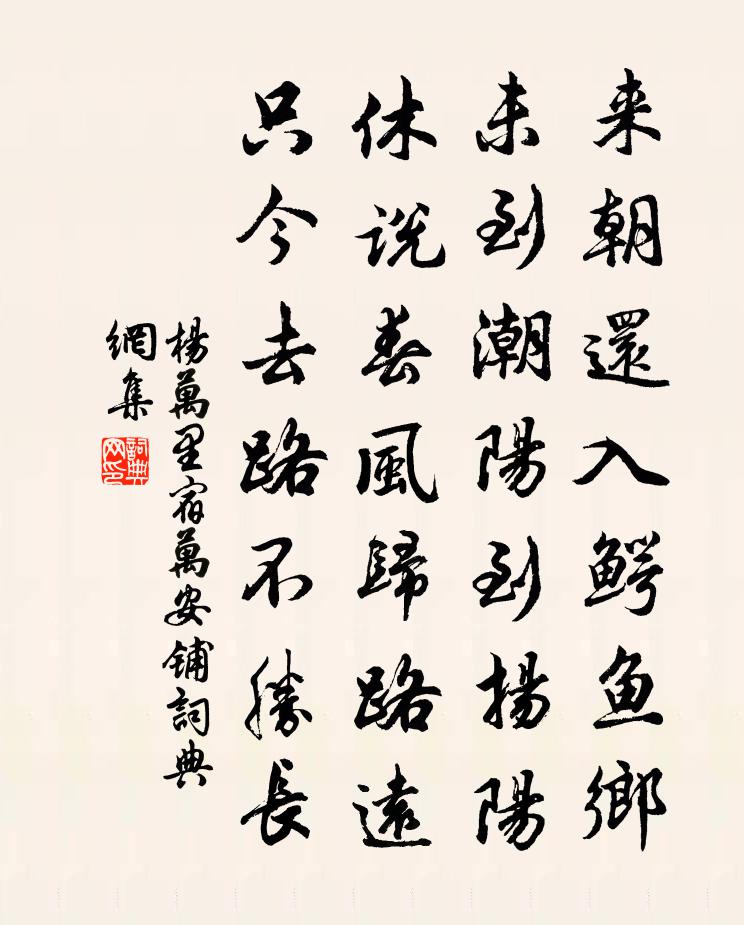 来朝還入鳄鱼鄉
未到潮陽到揚陽
休说春風歸路遠
只今去路不勝長
楊萬里宿萬安鋪詞典
網集
詞典
网印